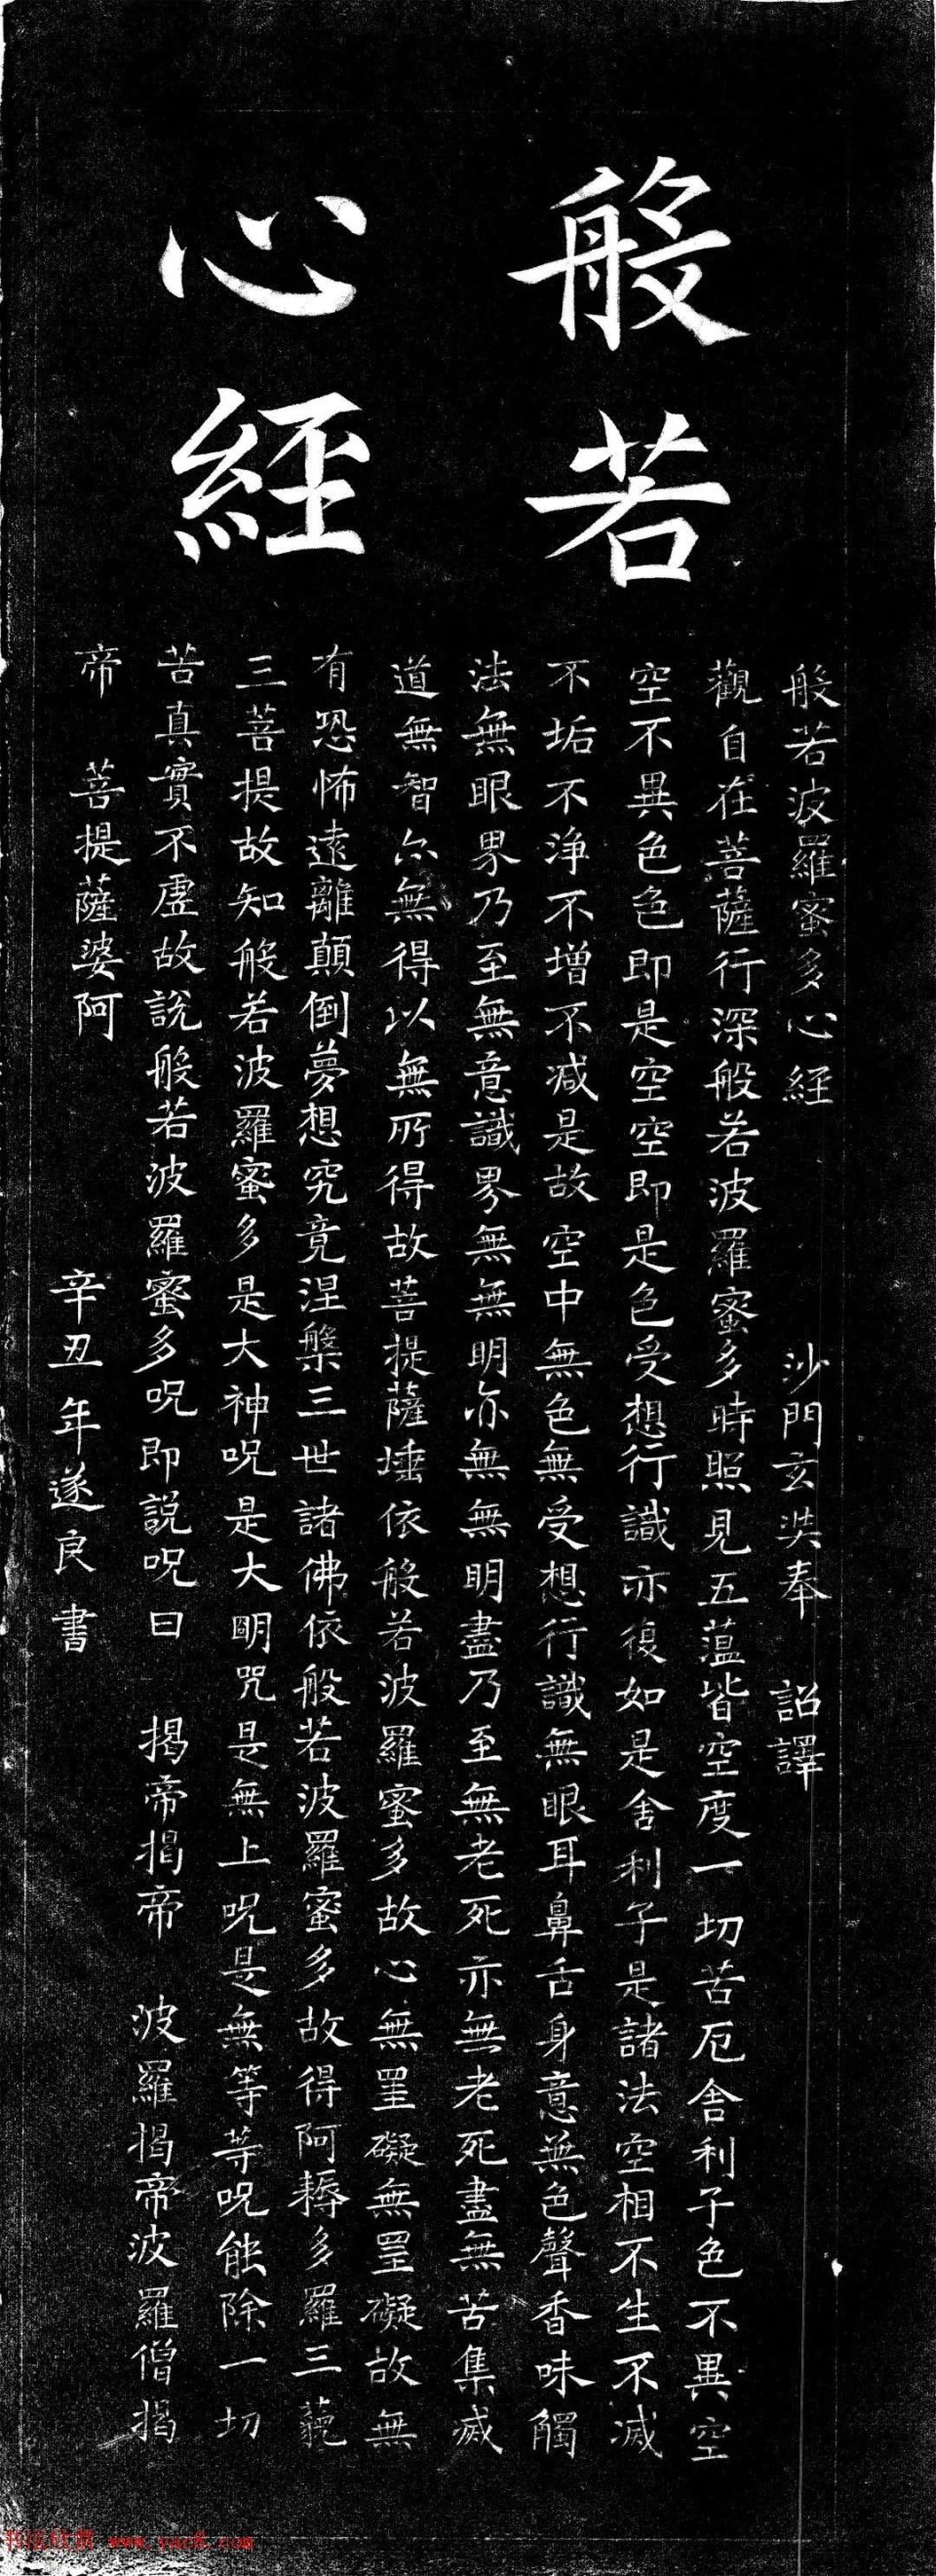 般若
心經
般若波羅蜜多心經 沙門玄奘奉 詔譯
觀自在菩薩行深般若波羅蜜多時照見五蕰皆空度一切苦厄舍利子色不異空
空不異色色即是空空即是色受想行識亦復如是舍利子是諸法空相不生不滅
不垢不淨不增不減是故空中無色無受想行識無眼耳鼻舌身意無色聲香味觸
法無眼界乃至無意識界無無明亦無無明盡乃至無老死亦無老死盡無苦集滅
道無智亦無得以無所得故菩提薩埵依般若波羅蜜多故心無罣礙無罣礙故無
有恐怖遠離顛倒夢想究竟涅槃三世諸佛依般若波羅蜜多故得阿耨多羅三藐
三菩提故知般若波羅蜜多是大神呪是大明咒是無上呪是無等等呪能除一切
苦真實不虛故說般若波羅蜜多呪即說呪曰 揭帝揭帝 波羅揭帝波羅僧揭
帝 菩提薩婆訶
辛丑年遂良書
书法欣赏 www.yac8.com